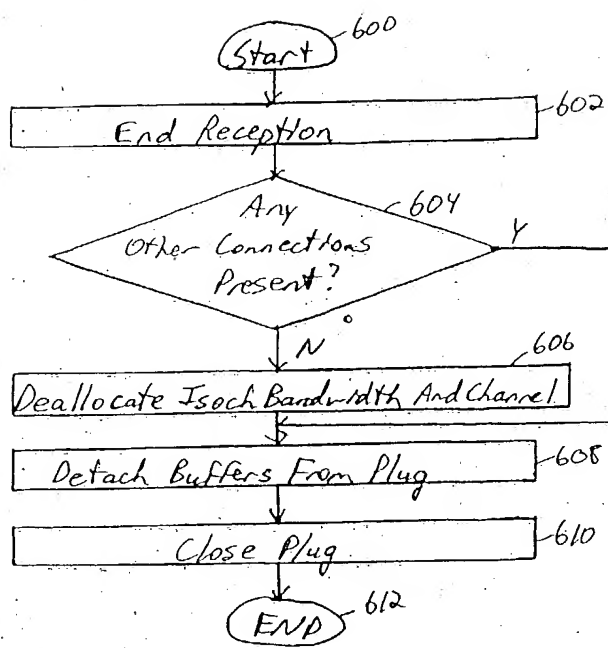 Start
600
End Reception
602
Any
Other Connections
Present?
604
Y
N
606
Deallocate Isoch Bandwidth And Channel
Detach Buffers From Plug
608
Close Plug
610
END
612